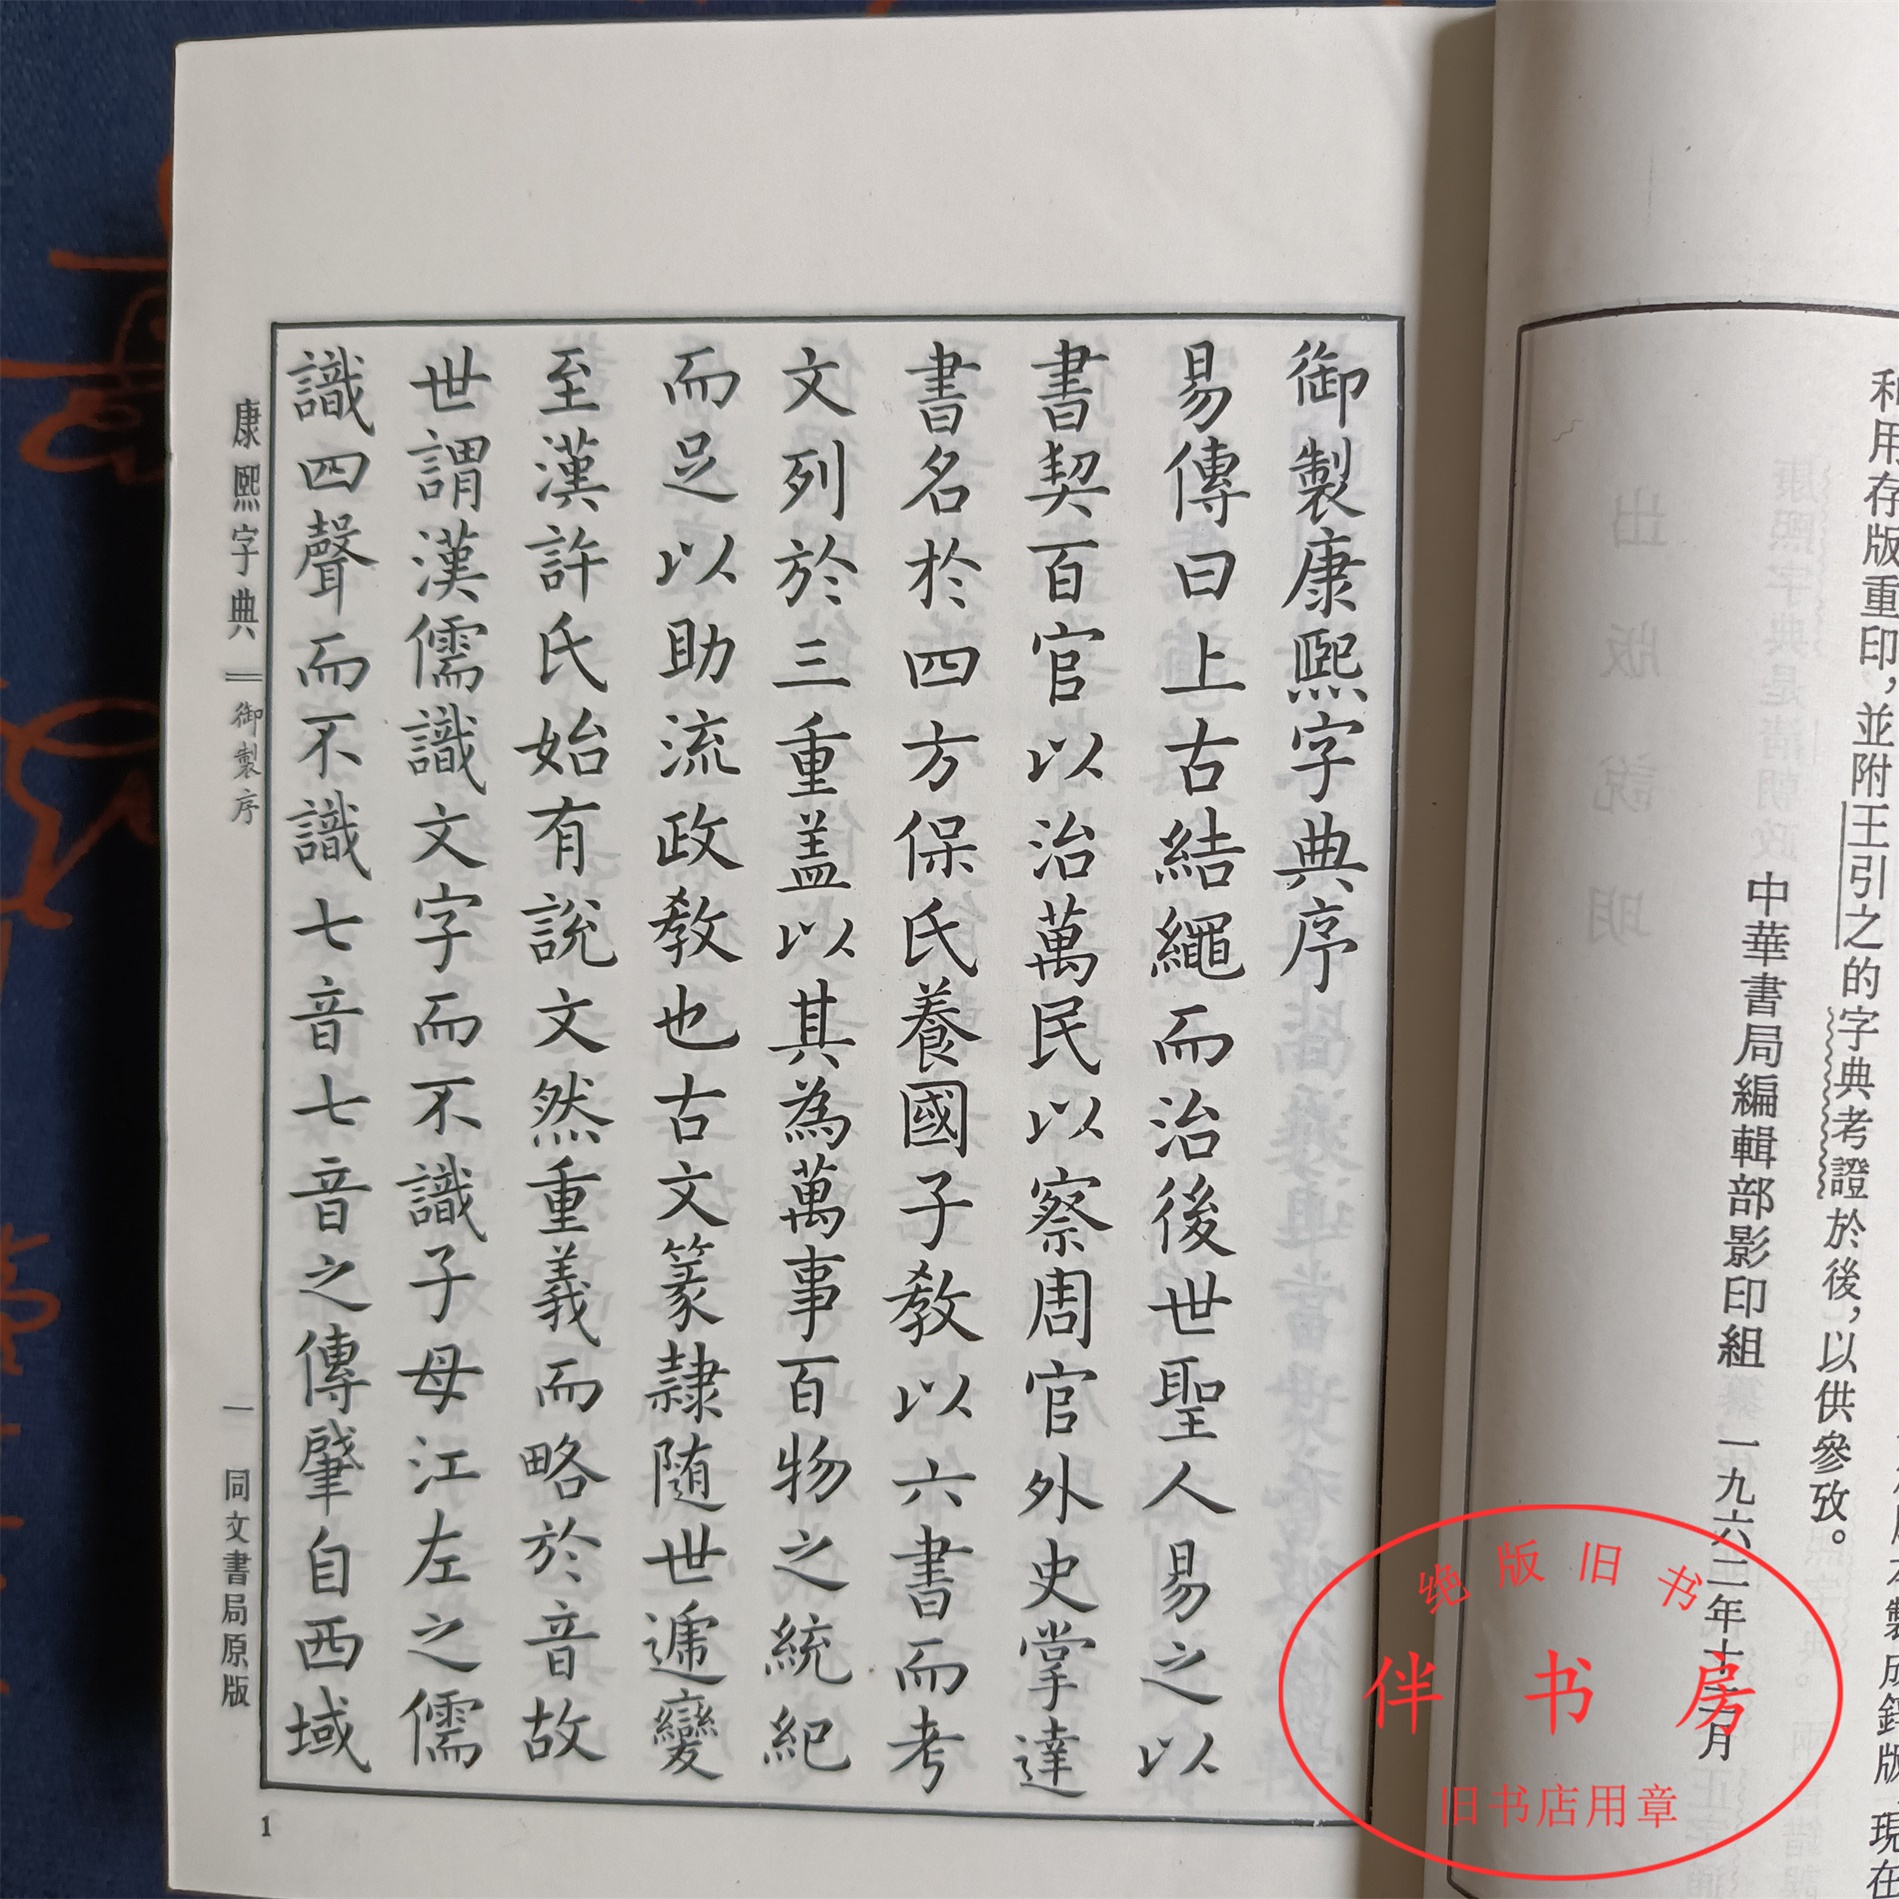 和用存版重印，並附王引之的字典考證於後，以供參攷。
中華書局編輯部影印組 一九六二年十二月
御製康熙字典序
易傳曰上古結繩而治後世聖人易之以
書契百官以治萬民以察周官外史掌達
書名於四方保氏養國子教以六書而考
文列於三重蓋以其為萬事百物之統紀
而足以助流政教也古文篆隸随世遞變
至漢許氏始有說文然重義而略於音故
世謂漢儒識文字而不識子母江左之儒
識四聲而不識七音七音之傳肇自西域
康熙字典 御製序
一 同文書局原版
1
绝版旧书
伴书房
旧书店用章